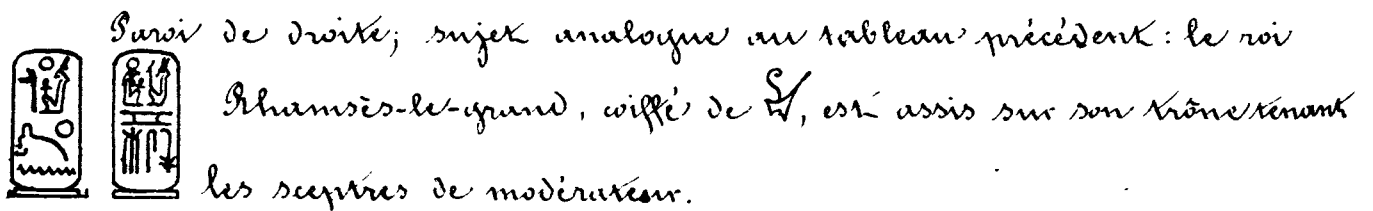 Paroi de droite; sujet analogue au tableau précédent: le roi
Rhamsès-le-grand, coiffé de , est assis sur son trône tenant
les sceptres de modérateur.